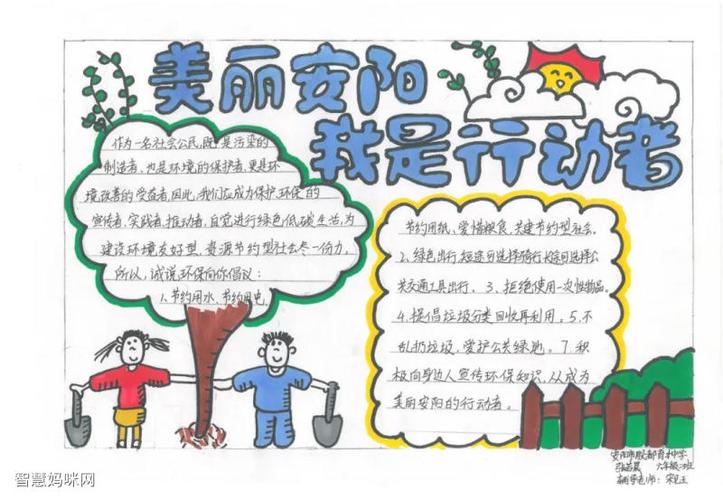 美丽安阳
我是行动者
作为一名社会公民,既是污染的
制造者,也是环境的保护者,更是环
境改善的受益者,因此,我们应成为保护环保的
宣传者,实践者,推动者,自觉进行绿色低碳生活,为
建设环境友好型、资源节约型社会尽一份力。
所以,诚说环保向你倡议:
1、节约用水、节约用电、
节约用纸、爱惜粮食、共建节约型社会。
2、绿色出行,短途可选择骑行,长途可选择公
共交通工具出行。3、拒绝使用一次性物品。
4、提倡垃圾分类回收再利用。5、不
乱扔垃圾,爱护公共绿地。7、积
极向身边人宣传环保知识,从成为
美丽安阳的行动者。
安阳市殷都育才中学
六年级 班
辅导老师:
智慧妈咪网